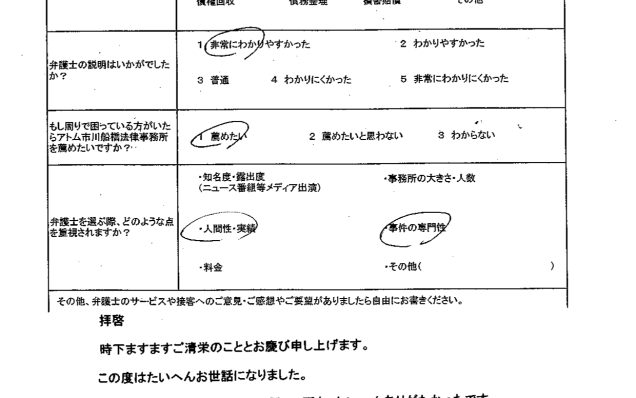 債権回収 債務整理 損害賠償 その他
弁護士の説明はいかがでした
か?
1 非常にわかりやすかった 2 わかりやすかった
3 普通 4 わかりにくかった 5 非常にわかりにくかった
もし周りで困っている方がいた
らアトム市川船橋法律事務所
を薦めたいですか?
1 薦めたい 2 薦めたいと思わない 3 わからない
弁護士を選ぶ際、どのような点
を重視されますか?
・知名度・露出度
(ニュース番組等メディア出演)
・事務所の大きさ・人数
・人間性・実績
・事件の専門性
・料金
・その他( )
その他、弁護士のサービスや接客へのご意見・ご感想やご要望がありましたら自由にお書きください。
拝啓
時下ますますご清栄のこととお慶び申し上げます。
この度はたいへんお世話になりました。